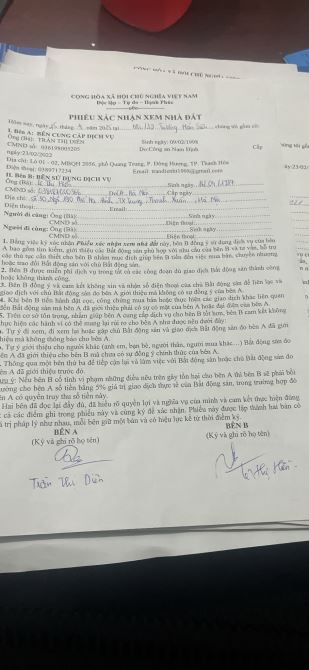 CỘNG HÒA XÃ HỘI CHỦ NGHĨA VIỆT NAM
Độc lập - Tự do - Hạnh Phúc
PHIẾU XÁC NHẬN XEM NHÀ ĐẤT
Hôm nay, ngày tháng năm chúng tôi gồm có:
I. Bên A: BÊN CUNG CẤP DỊCH VỤ
Ông (Bà): TRẦN THỊ DIÊN Sinh ngày: 09/02/1998
CMND số: 038198005205 Do:Công an Nam Định Cấp
ngày:23/02/2022
Địa chỉ: Lô 01 - 02, MBQH 2056, phố Quang Trung, P. Đông Hương, TP. Thanh Hóa
Điện thoại: 0389717234
II. Bên B: BÊN SỬ DỤNG DỊCH VỤ
Ông (Bà): Lê Thị Hiền Sinh ngày
CMND số: Cấp ngày
Địa chỉ:
Điện thoại: Email:
Người đi cùng: Ông (Bà): Sinh ngày
CMND số: Điện thoại:
Người đi cùng: Ông (Bà): Sinh ngày
CMND số: Điện thoại:
1. Bằng việc ký xác nhận Phiếu xác nhận xem nhà đất này, bên B đồng ý sử dụng dịch vụ của bên
A bao gồm tìm kiếm, giới thiệu các Bất động sản phù hợp với nhu cầu của bên B và tư vấn, hỗ trợ
các thủ tục cần thiết cho bên B nhằm mục đích giúp bên B tiến đến việc mua bán, chuyển nhượng
hoặc trao đổi Bất động sản với chủ Bất động sản.
2. Bên B được miễn phí dịch vụ trong tất cả các công đoạn dù giao dịch Bất động sản thành công
hoặc không thành công.
3. Bên B đồng ý và cam kết không xin và nhận số điện thoại của chủ Bất động sản để liên lạc và
giao dịch với chủ Bất động sản do bên A giới thiệu mà không có sự đồng ý của bên A.
4. Khi bên B tiến hành đặt cọc, công chứng mua bán hoặc thực hiện các giao dịch khác liên quan
đến Bất động sản mà bên A đã giới thiệu phải có sự có mặt của bên A hoặc đại diện của bên A.
5. Trên cơ sở tôn trọng, nhằm giúp bên A cung cấp dịch vụ cho bên B tốt hơn, bên B cam kết không
thực hiện các hành vi có thể mang lại rủi ro cho bên A như được nêu dưới đây:
Tự ý đi xem, đi xem lại hoặc gặp chủ Bất động sản và giao dịch Bất động sản do bên A đã giới
thiệu mà không thông báo cho bên A.
Tự ý giới thiệu cho người khác (anh em, bạn bè, người thân, người mua khác...) Bất động sản do
bên A đã giới thiệu cho bên B mà chưa có sự đồng ý chính thức của bên A.
Thông qua một bên thứ ba để tiếp cận lại và làm việc với Bất động sản hoặc chủ Bất động sản do
bên A đã giới thiệu trước đó.
Lưu ý: Nếu bên B cố tình vi phạm những điều nêu trên gây tổn hại cho bên A thì bên B sẽ phải bồi
thường cho bên A số tiền bằng 5% giá trị giao dịch thực tế của Bất động sản, trong trường hợp đó
bên A có quyền truy thu số tiền này.
Hai bên đã đọc lại đầy đủ, đã hiểu rõ quyền lợi và nghĩa vụ của mình và cam kết thực hiện đúng
các điểm ghi trong phiếu này và cùng ký để xác nhận. Phiếu này được lập thành hai bản có
giá trị pháp lý như nhau, mỗi bên giữ một bản và có hiệu lực kể từ thời điểm ký.
BÊN A BÊN B
(Ký và ghi rõ họ tên) (Ký và ghi rõ họ tên)
Trần Thị Diên Lê Thị Hiền